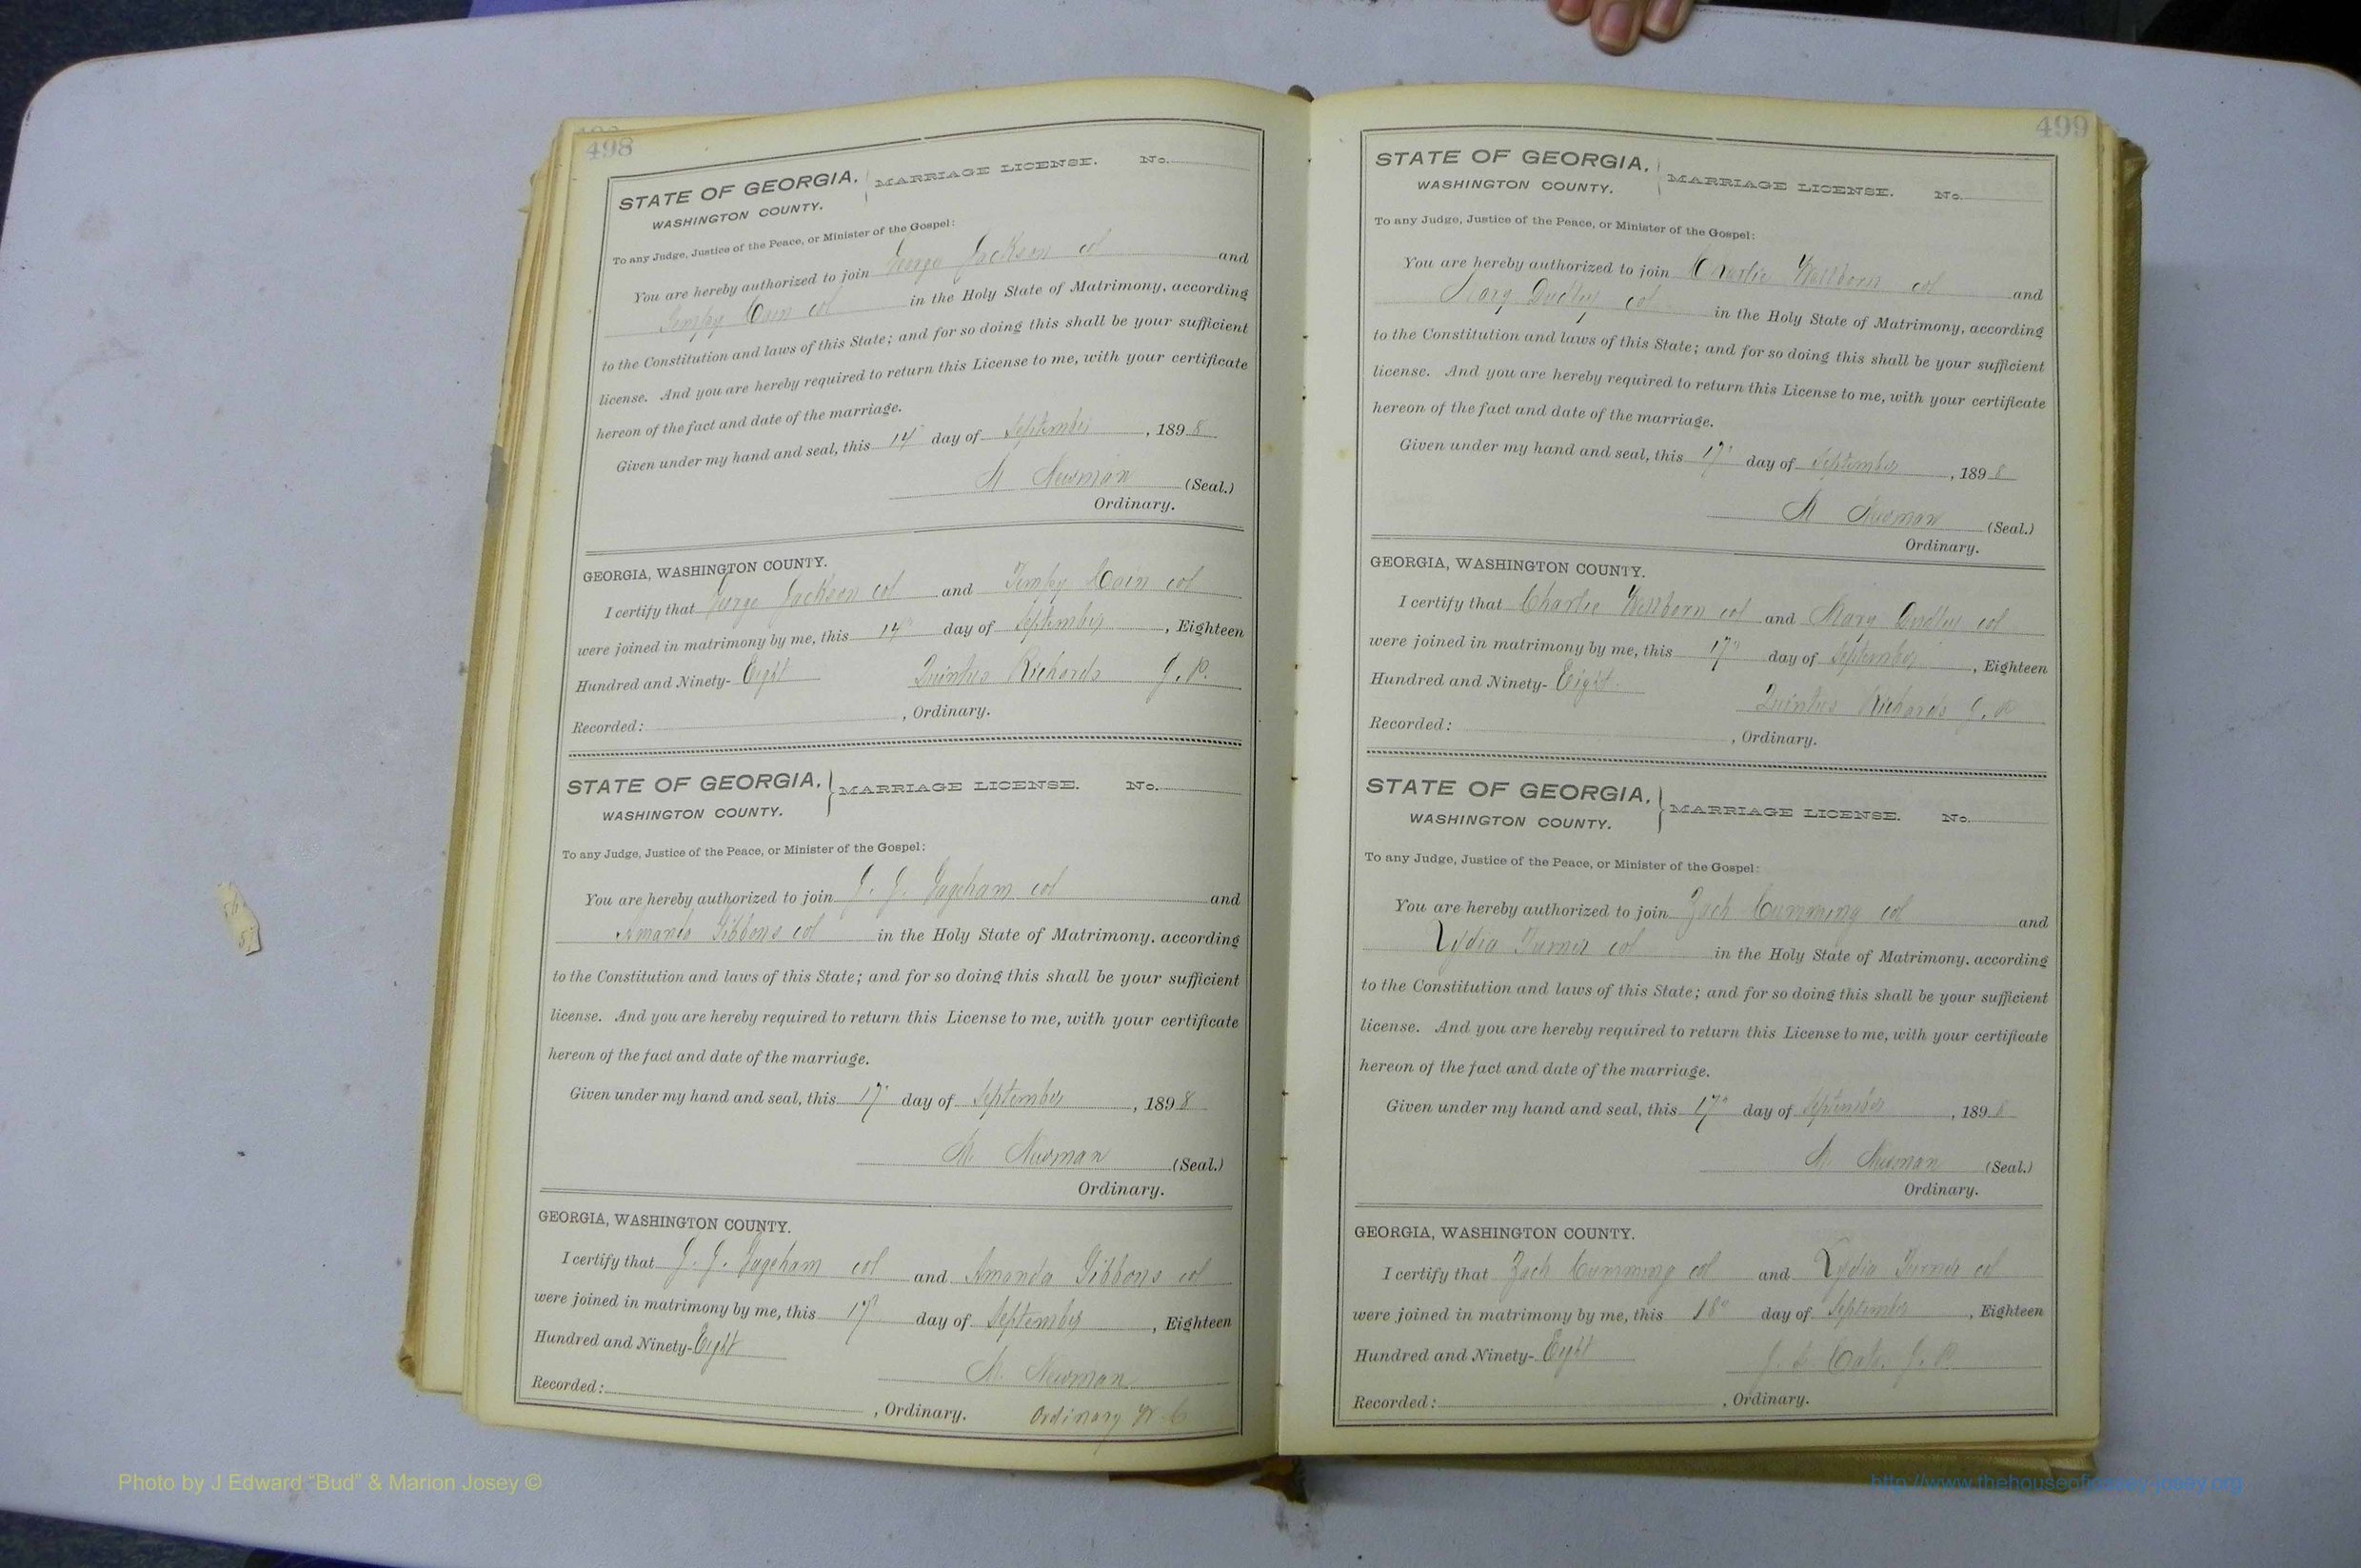 498
STATE OF GEORGIA, MARRIAGE LICENSE. No.
WASHINGTON COUNTY.
To any Judge, Justice of the Peace, or Minister of the Gospel:
You are hereby authorized to join George Jackson col and
Tempy Cain col in the Holy State of Matrimony, according
to the Constitution and laws of this State; and for so doing this shall be your sufficient
license. And you are hereby required to return this License to me, with your certificate
hereon of the fact and date of the marriage.
Given under my hand and seal, this 14" day of September, 1898
M Newman (Seal.)
Ordinary.
GEORGIA, WASHINGTON COUNTY.
I certify that George Jackson col and Tempy Cain col
were joined in matrimony by me, this 14" day of September, Eighteen
Hundred and Ninety-Eight Quintus Richards J. P.
Recorded: , Ordinary.
STATE OF GEORGIA, MARRIAGE LICENSE. No.
WASHINGTON COUNTY.
To any Judge, Justice of the Peace, or Minister of the Gospel:
You are hereby authorized to join J. J. col and
Amanda Gibbons col in the Holy State of Matrimony, according
to the Constitution and laws of this State; and for so doing this shall be your sufficient
license. And you are hereby required to return this License to me, with your certificate
hereon of the fact and date of the marriage.
Given under my hand and seal, this 17" day of September, 1898
M. Newman (Seal.)
Ordinary.
GEORGIA, WASHINGTON COUNTY.
I certify that J. J. col and Amanda Gibbons col
were joined in matrimony by me, this 17" day of September, Eighteen
Hundred and Ninety-Eight M. Newman
Recorded: , Ordinary. Ordinary W. C
499
STATE OF GEORGIA, MARRIAGE LICENSE. No.
WASHINGTON COUNTY.
To any Judge, Justice of the Peace, or Minister of the Gospel:
You are hereby authorized to join Charlie Wellborn col and
Mary Dudley col in the Holy State of Matrimony, according
to the Constitution and laws of this State; and for so doing this shall be your sufficient
license. And you are hereby required to return this License to me, with your certificate
hereon of the fact and date of the marriage.
Given under my hand and seal, this 17" day of September, 1898
M Newman (Seal.)
Ordinary.
GEORGIA, WASHINGTON COUNTY.
I certify that Charlie Wellborn col and Mary Dudley col
were joined in matrimony by me, this 17" day of September, Eighteen
Hundred and Ninety-Eight. Quintus Richards J. P
Recorded: , Ordinary.
STATE OF GEORGIA, MARRIAGE LICENSE. No.
WASHINGTON COUNTY.
To any Judge, Justice of the Peace, or Minister of the Gospel:
You are hereby authorized to join Zach Cumming col and
Lydia Turner col in the Holy State of Matrimony, according
to the Constitution and laws of this State; and for so doing this shall be your sufficient
license. And you are hereby required to return this License to me, with your certificate
hereon of the fact and date of the marriage.
Given under my hand and seal, this 17" day of September, 1898
M. Newman (Seal.)
Ordinary.
GEORGIA, WASHINGTON COUNTY.
I certify that Zach Cumming col and Lydia Turner col
were joined in matrimony by me, this 18" day of September, Eighteen
Hundred and Ninety-Eight J. P.
Recorded: , Ordinary.
Photo by J Edward "Bud" & Marion Josey ©